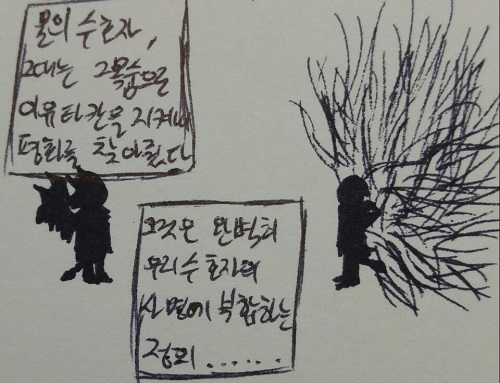 물의 수호자,
그대는 그 목숨으로
아유타칸을 지켜내
평화를 찾아줬다
그것은 완벽히
우리 수호자의
사명에 부합하는
정의......